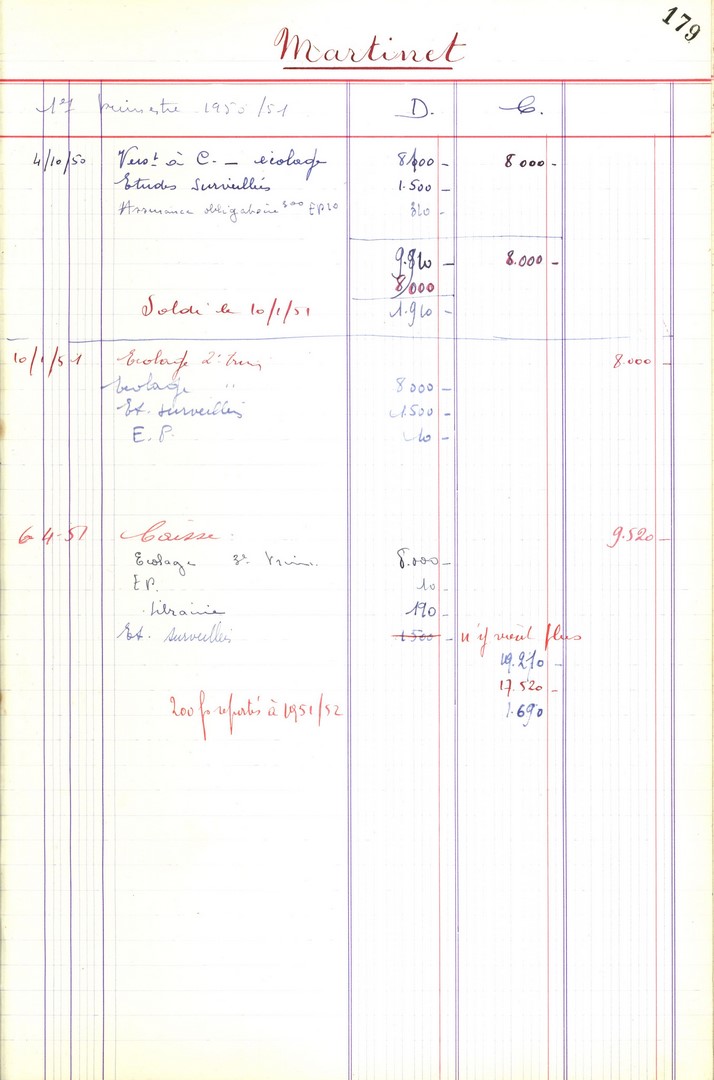 179
Martinet
1er trimestre 1950/51 D. C.
4/10/50 Verst à C. — écolage 8000 - 8000 -
Etudes surveillées 1.500 -
Assurance obligatoire 300 EP 10 310 -
9.810 - 8.000 -
8000
Soldé le 10/1/51 1.910 -
10/1/51 Ecolage 2e trim 8.000 -
Ecolage " 8000 -
Et. surveillées 1500 -
E. P. 10 -
6-4-51 Caisse 9.520 -
Ecolage 3e trim. 8.000 -
EP. 10 -
Librairie 190 -
Et. surveillées 1500 - n'y vient plus
19.210 -
17.520 -
200 fr reportés à 1951/52 1.690